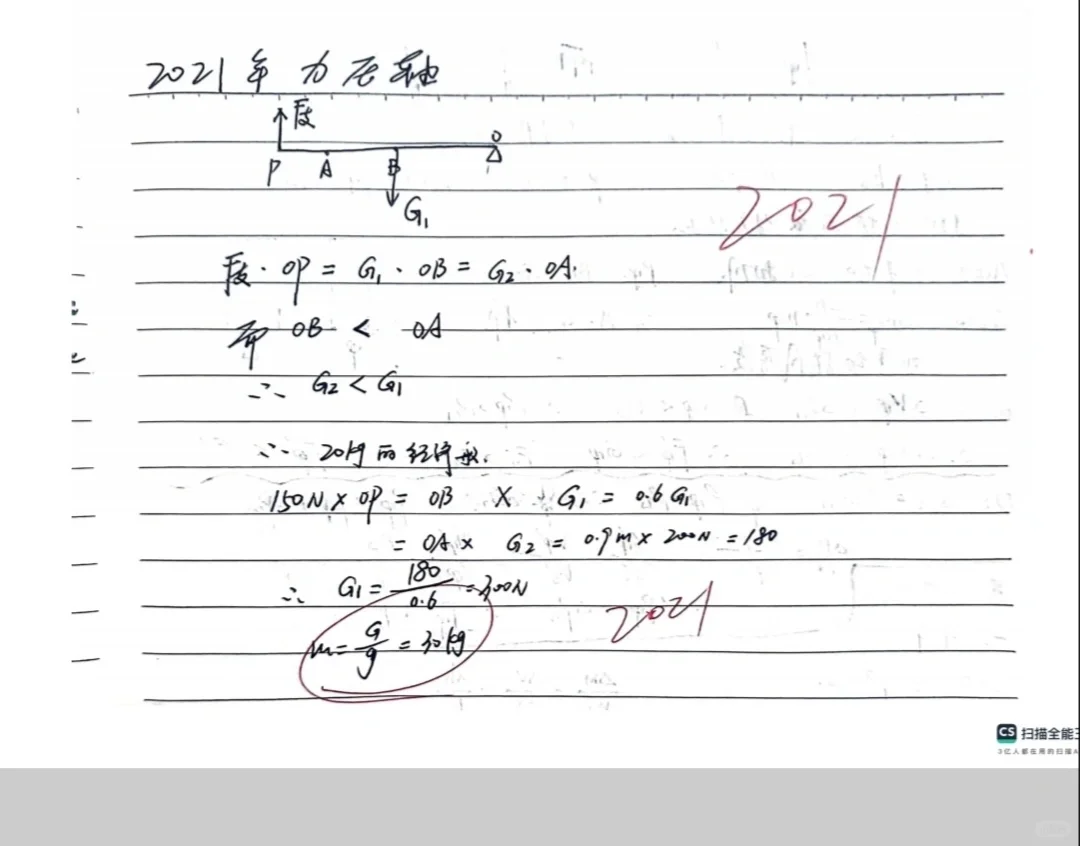 2021年 力压轴
F支
O
P A B
G₁
2021
F支 · OP = G₁ · OB = G₂ · OA.
而 OB < OA
∴ G₂ < G₁
∴ 20kg
150N × OP = OB × G₁ = 0.6 G₁
= OA × G₂ = 0.9m × 200N = 180
∴ G₁ = 180/0.6 = 300N
2021
m = G/g = 30kg
CS 扫描全能王
3亿人都在用的扫描A